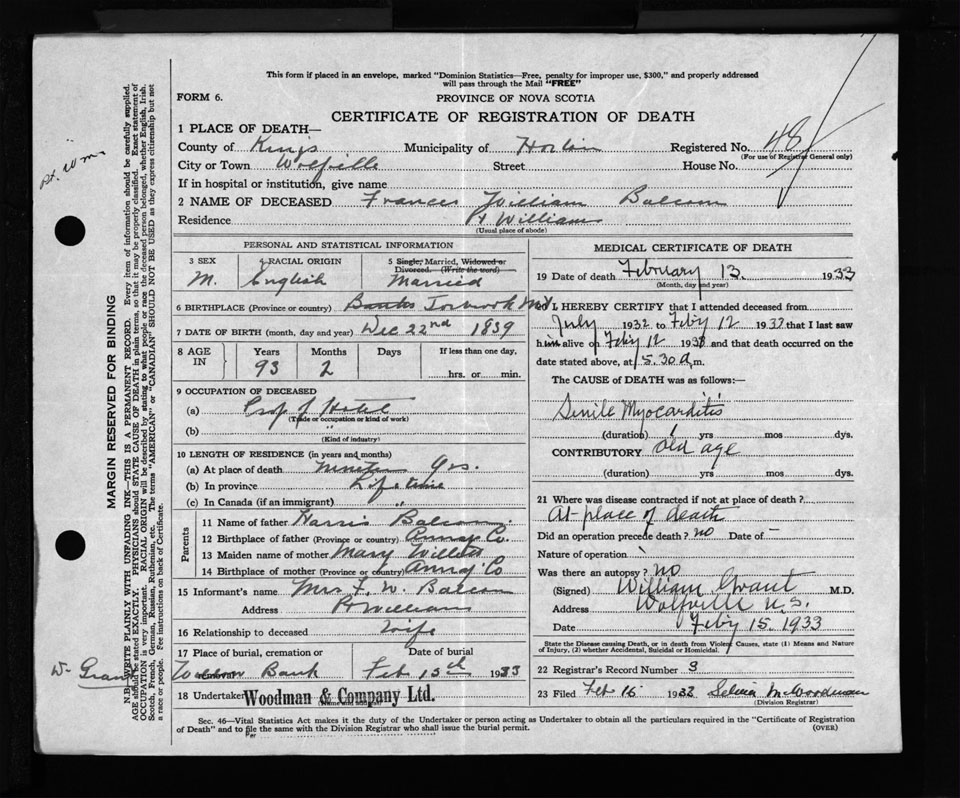 This form if placed in an envelope, marked "Dominion Statistics—Free, penalty for improper use, $300," and properly addressed
will pass through the Mail "FREE"
FORM 6.
PROVINCE OF NOVA SCOTIA
CERTIFICATE OF REGISTRATION OF DEATH
1 PLACE OF DEATH—
County of Kings Municipality of Horton Registered No. 48
(For use of Registrar General only)
City or Town Wolfville Street House No.
If in hospital or institution, give name
2 NAME OF DECEASED Frances William Balcom
Residence Pt Williams
(Usual place of abode)
PERSONAL AND STATISTICAL INFORMATION
3 SEX 4 RACIAL ORIGIN 5 Single, Married, Widowed or
Divorced. (Write the word)
M. English Married
6 BIRTHPLACE (Province or country)
7 DATE OF BIRTH (month, day and year) Dec 22nd 1839
8 AGE IN Years Months Days If less than one day,
93 2 hrs. or min.
9 OCCUPATION OF DECEASED
(a) Prop of Hotel
(Trade or occupation or kind of work)
(b) "
(Kind of industry)
10 LENGTH OF RESIDENCE (in years and months)
(a) At place of death yrs.
(b) In province Life time
(c) In Canada (if an immigrant) "
Parents
11 Name of father Harris Balcom
12 Birthplace of father (Province or country) Annap Co.
13 Maiden name of mother Mary Willett
14 Birthplace of mother (Province or country) Annap Co
15 Informant's name Mrs F. W. Balcom
Address Pt Williams
16 Relationship to deceased Wife
17 Place of burial, cremation or Date of burial
Bank Feb 15th 1933
18 Undertaker Woodman & Company Ltd.
(Name and address)
MEDICAL CERTIFICATE OF DEATH
19 Date of death February 13 1933
(Month, day and year)
20 I HEREBY CERTIFY that I attended deceased from
July 1932 to Feby 12 1933 that I last saw
him alive on Feby 12 1933 and that death occurred on the
date stated above, at 5.30 a.m.
The CAUSE OF DEATH was as follows:
Senile Myocarditis
(duration) 1 yrs mos dys.
CONTRIBUTORY old age
(duration) yrs mos dys.
21 Where was disease contracted if not at place of death?
At place of death
Did an operation precede death? no Date of –
Nature of operation
Was there an autopsy? no
(Signed) William Grant M.D.
Address Wolfville N.S.
Date Feby 15. 1933
State the Disease causing Death, or in death from Violent Causes, state (1) Means and Nature
of Injury, (2) whether Accidental, Suicidal or Homicidal.
22 Registrar's Record Number 9
23 Filed Feb 16 1933 Selina M. Woodman
(Division Registrar)
Sec. 46—Vital Statistics Act makes it the duty of the Undertaker or person acting as Undertaker to obtain all the particulars required in the "Certificate of Registration
of Death" and to file the same with the Division Registrar who shall issue the burial permit.
(OVER)
Per
MARGIN RESERVED FOR BINDING
N.B.—WRITE PLAINLY WITH UNFADING INK—THIS IS A PERMANENT RECORD. Every item of information should be carefully supplied.
AGE should be stated EXACTLY. PHYSICIANS should STATE CAUSE OF DEATH in plain terms, so that it may be properly classified. Exact statement of
OCCUPATION is very important. RACIAL ORIGIN will be described by stating to what people or race the deceased person belonged, whether English, Irish,
Scotch, French, German, Russian, Ruthenian, etc. The terms "AMERICAN" or "CANADIAN" SHOULD NOT BE USED as they express citizenship but not
a race or people. Fee instructions on back of Certificate.
pt. Wms
Wm Grant